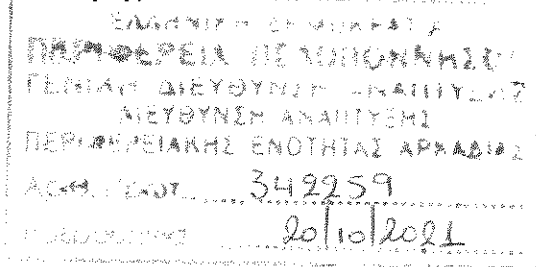 ΕΛΛΗΝΙΚΗ ΔΗΜΟΚΡΑΤΙΑ
ΠΕΡΙΦΕΡΕΙΑ ΠΕΛΟΠΟΝΝΗΣΟΥ
ΓΕΝΙΚΗ ΔΙΕΥΘΥΝΣΗ ΑΝΑΠΤΥΞΗΣ
ΔΙΕΥΘΥΝΣΗ ΑΝΑΠΤΥΞΗΣ
ΠΕΡΙΦΕΡΕΙΑΚΗΣ ΕΝΟΤΗΤΑΣ ΑΡΚΑΔΙΑΣ
342259
20/10/2021